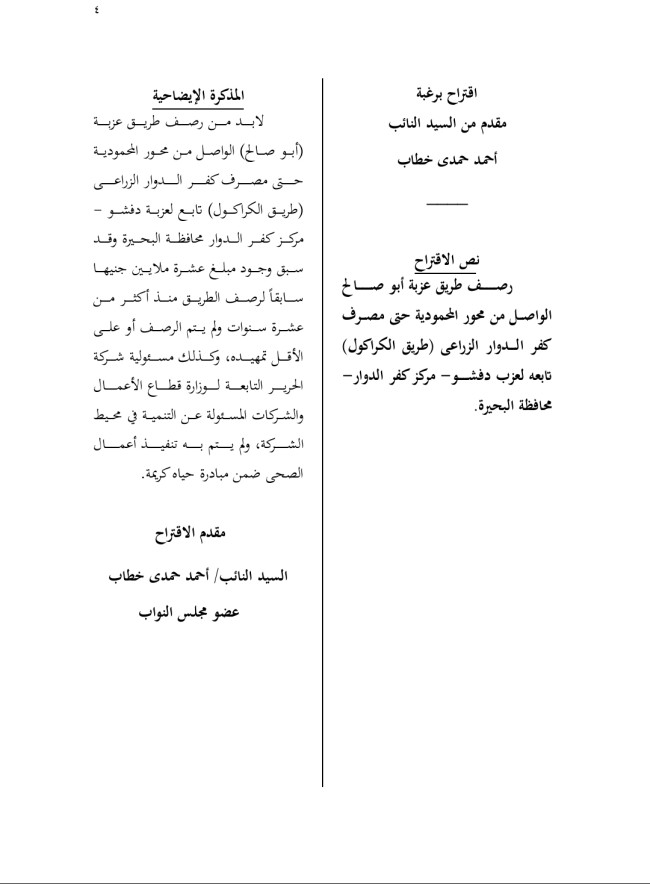 ٤
اقتراح برغبة
مقدم من السيد النائب
أحمد حمدى خطاب
نص الاقتراح
رصف طريق عزبة أبو صالح
الواصل من محور المحمودية حتى مصرف
كفر الدوار الزراعى (طريق الكراكول)
تابعه لعزب دفشو – مركز كفر الدوار–
محافظة البحيرة.
المذكرة الإيضاحية
لابد من رصف طريق عزبة
(أبو صالح) الواصل من محور المحمودية
حتى مصرف كفر الدوار الزراعى
(طريق الكراكول) تابع لعزبة دفشو –
مركز كفر الدوار محافظة البحيرة وقد
سبق وجود مبلغ عشرة ملايين جنيها
سابقاً لرصف الطريق منذ أكثر من
عشرة سنوات ولم يتم الرصف أو على
الأقل تمهيده، وكذلك مسئولية شركة
الحرير التابعة لوزارة قطاع الأعمال
والشركات المسئولة عن التنمية في محيط
الشركة، ولم يستم به تنفيذ أعمال
الصحى ضمن مبادرة حياه كريمة.
مقدم الاقتراح
السيد النائب/ أحمد حمدى خطاب
عضو مجلس النواب